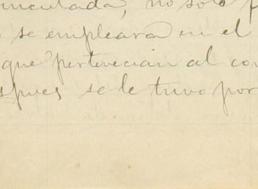 mculada, no solo
se empleara en el
que pertenecian al con
spues se le tuvo por